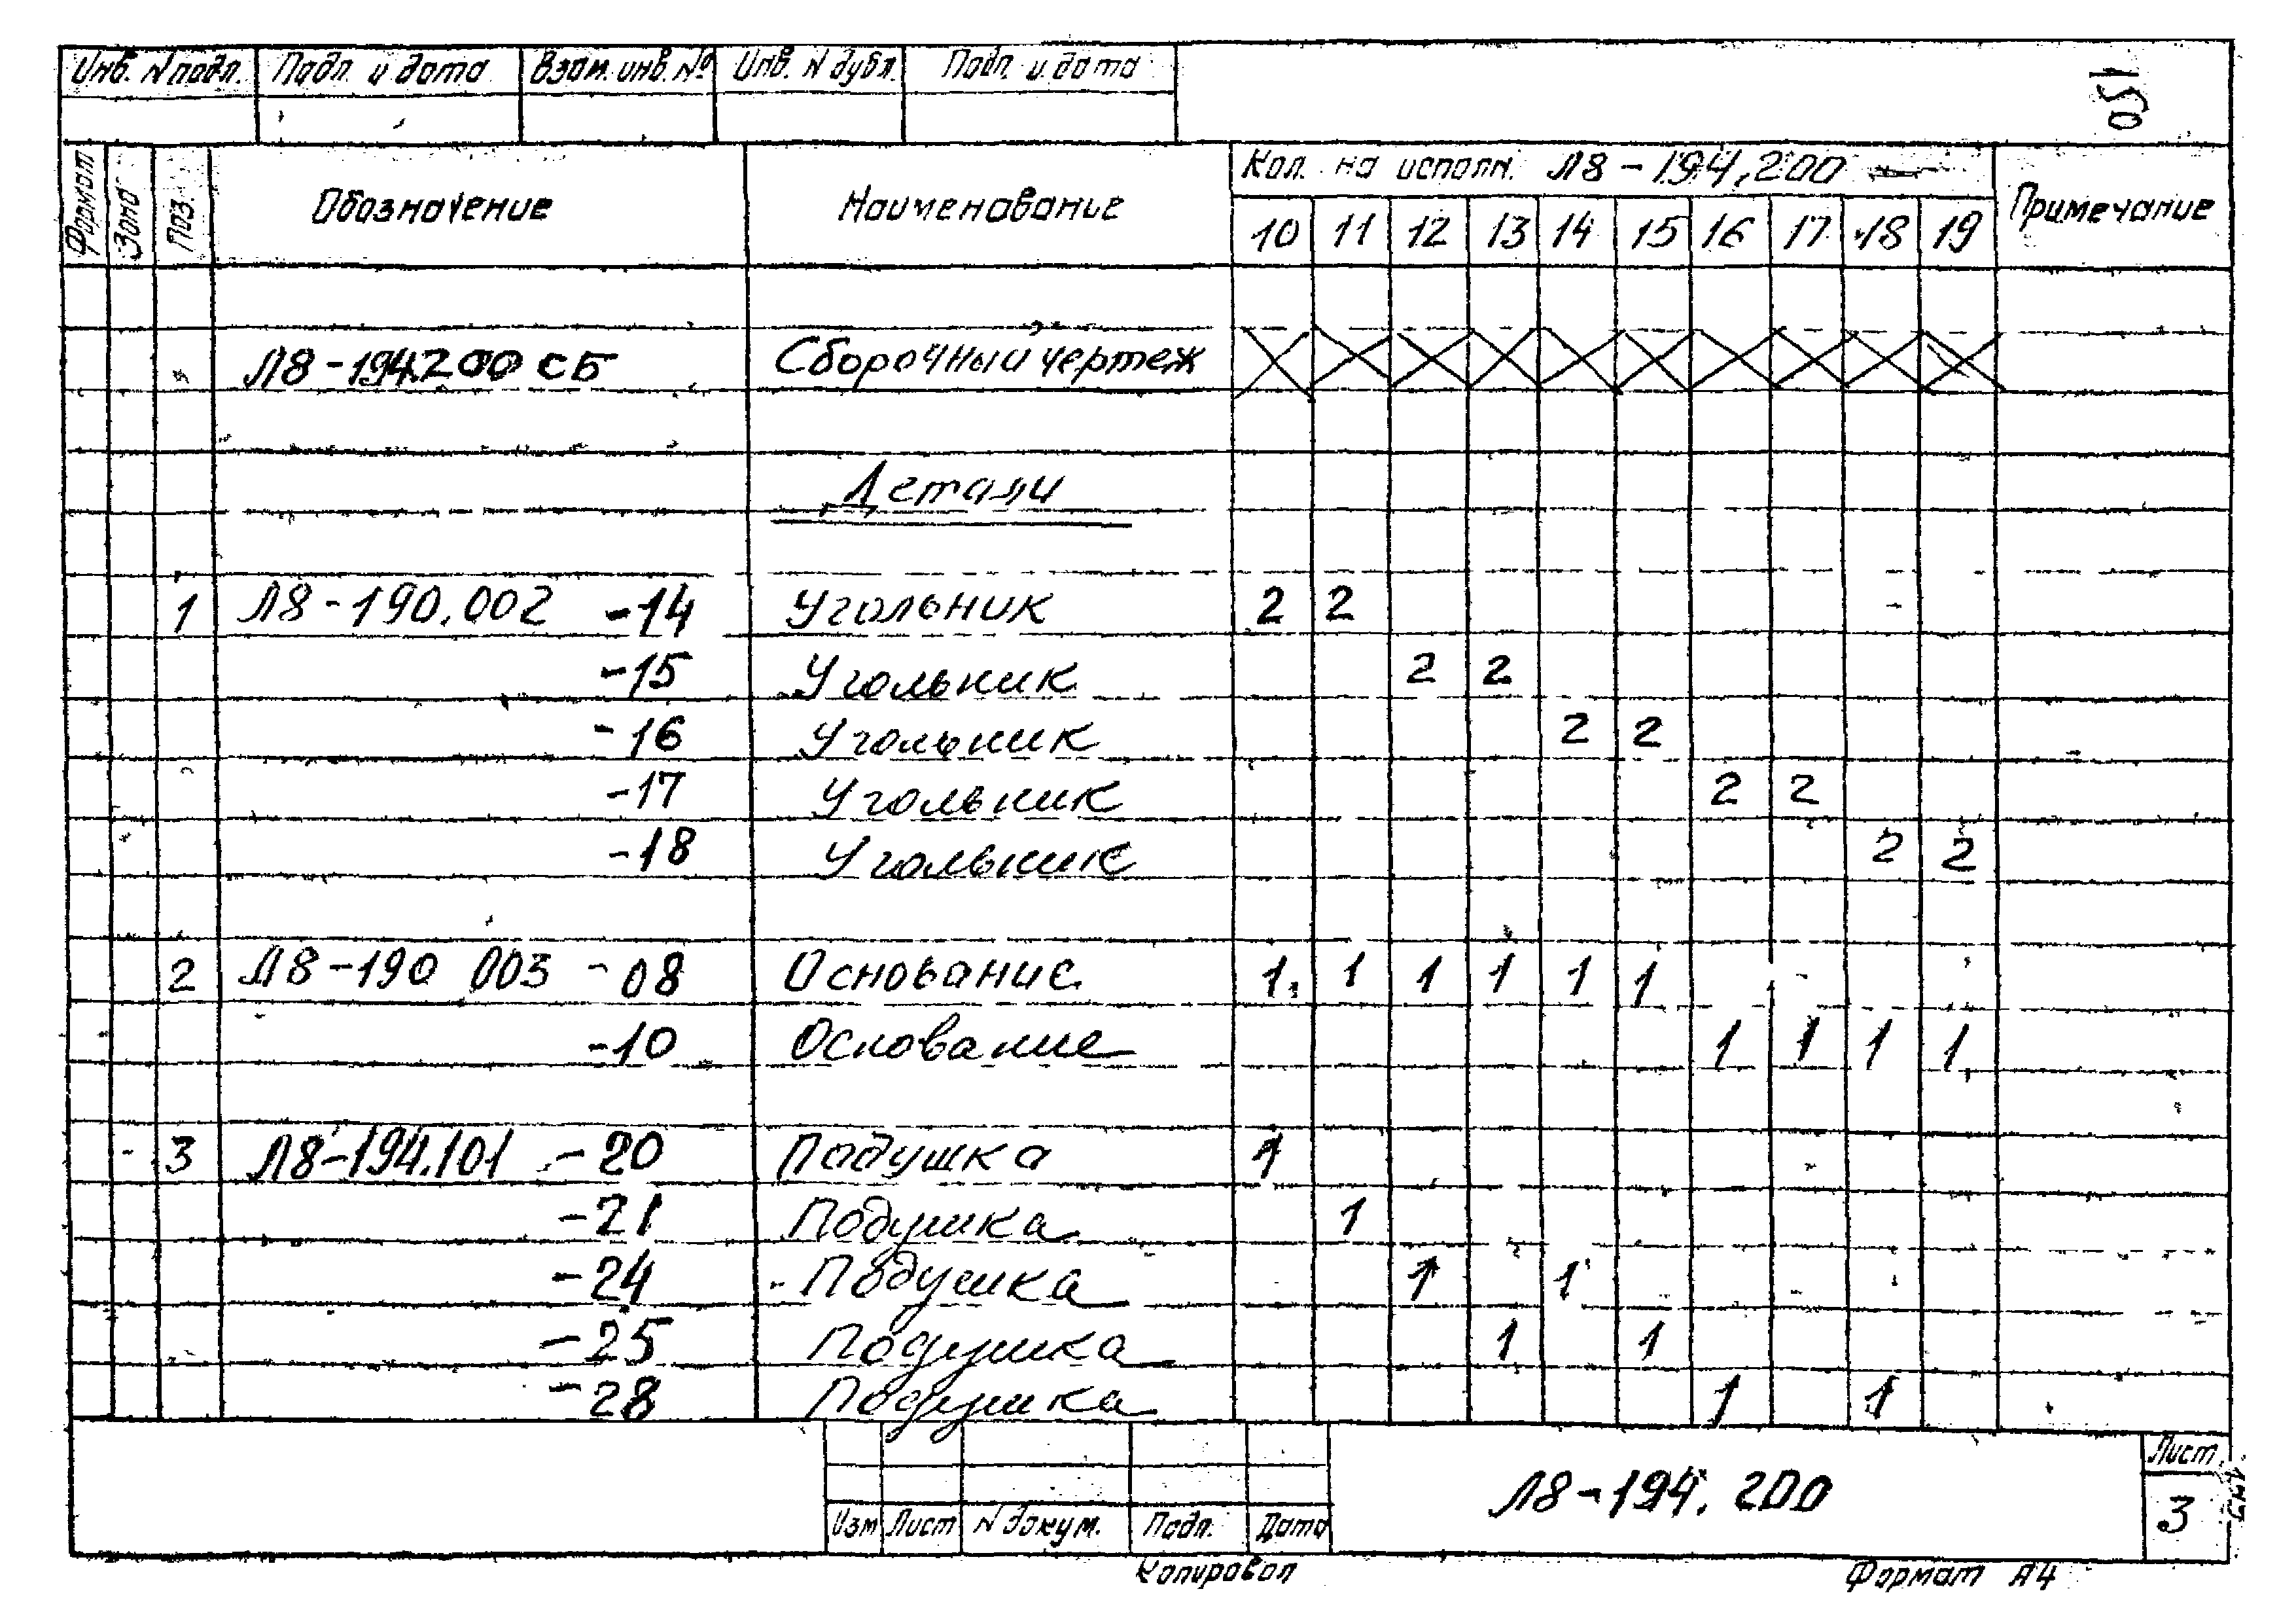 Инв. N подл. Подп. и дата Взам. инв. № Инв. N дубл. Подп. и дата
Формат Зона Поз. Обозначение Наименование Кол. на исполн. Л8-194.200 — Примечание
10 11 12 13 14 15 16 17 18 19
Л8-194.200 СБ Сборочный чертеж
Детали
1 Л8-190.002 -14 Угольник 2 2
-15 Угольник 2 2
-16 Угольник 2 2
-17 Угольник 2 2
-18 Угольник 2 2
2 Л8-190 003 -08 Основание 1 1 1 1 1 1
-10 Основание 1 1 1 1
3 Л8-194.101 -20 Подушка 1
-21 Подушка 1
-24 Подушка 1 1
-25 Подушка 1 1
-28 Подушка 1 1
Изм Лист N докум. Подп. Дата Л8-194.200 Лист
3
Копировал Формат А4